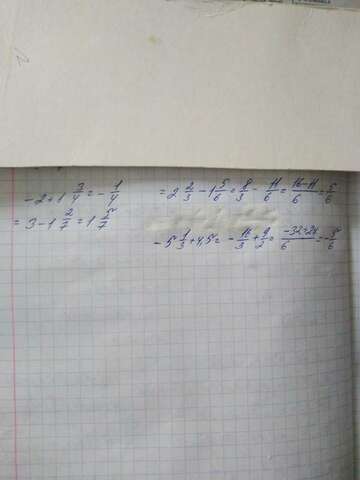 -2+1 3/4 = -1/4
= 3-1 2/7 = 1 5/7
= 2 2/3 - 1 5/6 = 8/3 - 11/6 = 16-11/6 = 5/6
-5 1/3 + 4,5 = -16/3 + 9/2 =